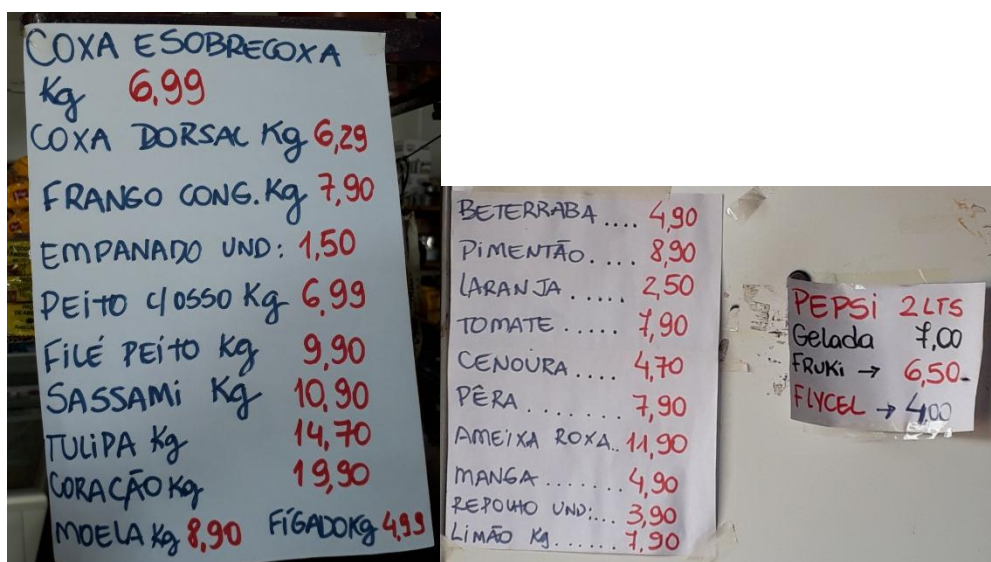 COXA E SOBRECOXA
Kg 6,99
COXA DORSAL Kg 6,29
FRANGO CONG. Kg 7,90
EMPANADO UND: 1,50
PEITO C/OSSO Kg 6,99
FILÉ PEITO Kg 9,90
SASSAMI Kg 10,90
TULIPA Kg 14,70
CORAÇÃO Kg 19,90
MOELA Kg 8,90 FÍGADO Kg 4,99
BETERRABA .... 4,90
PIMENTÃO .... 8,90
LARANJA ..... 2,50
TOMATE ..... 7,90
CENOURA .... 4,70
PÊRA ........ 7,90
AMEIXA ROXA.. 11,90
MANGA ....... 4,90
REPOLHO UND:... 3,90
LIMÃO Kg ...... 7,90
PEPSI 2 LTS
Gelada 7,00
FRUKI → 6,50
FLYCEL → 4,00